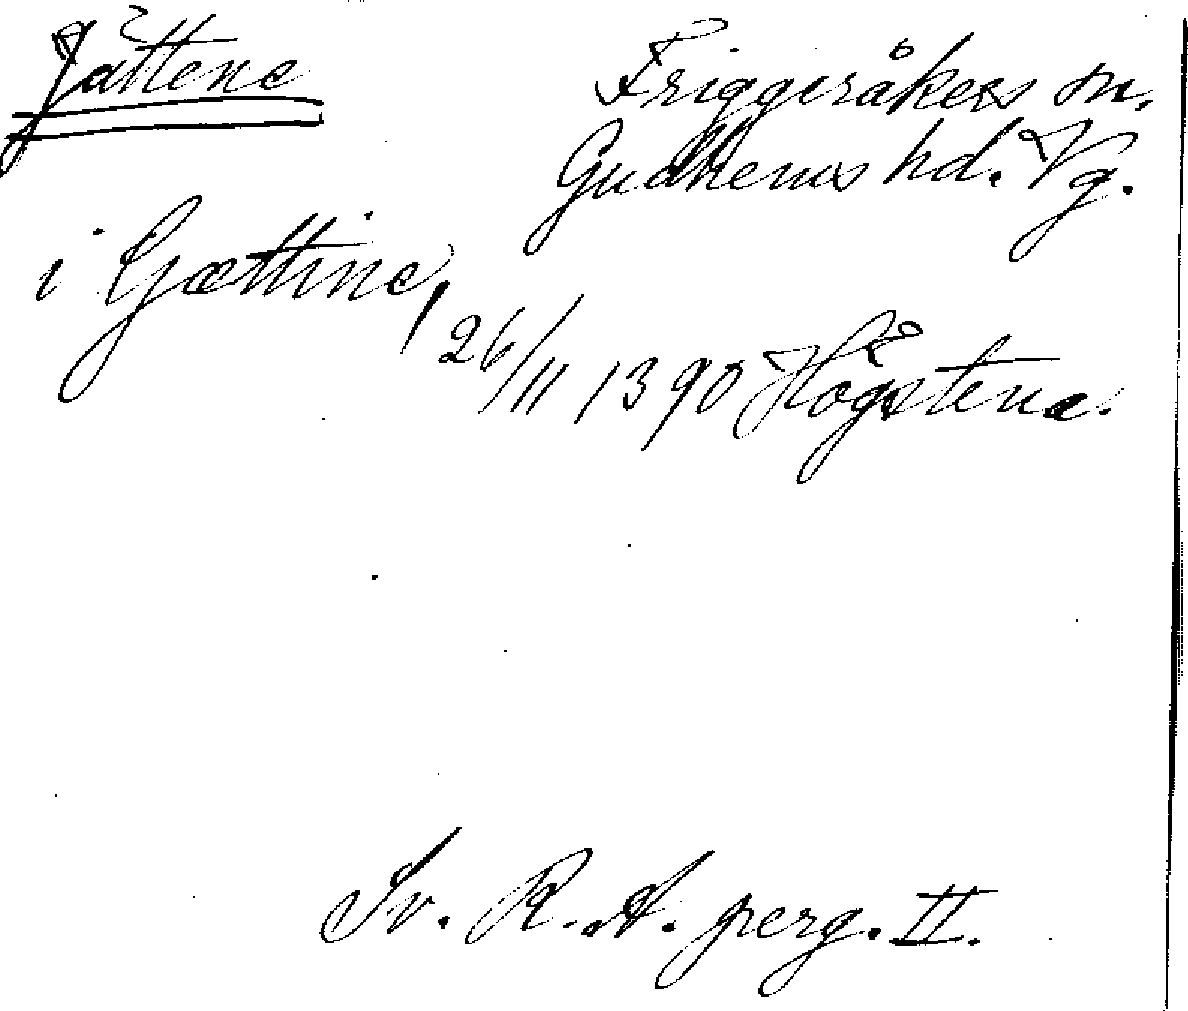 Jättene
Friggeråkers sn.
Gudhems hd. Vg.
i Gættine,
26/11 1390 Högstena.
Sv. R. A. perg. II.